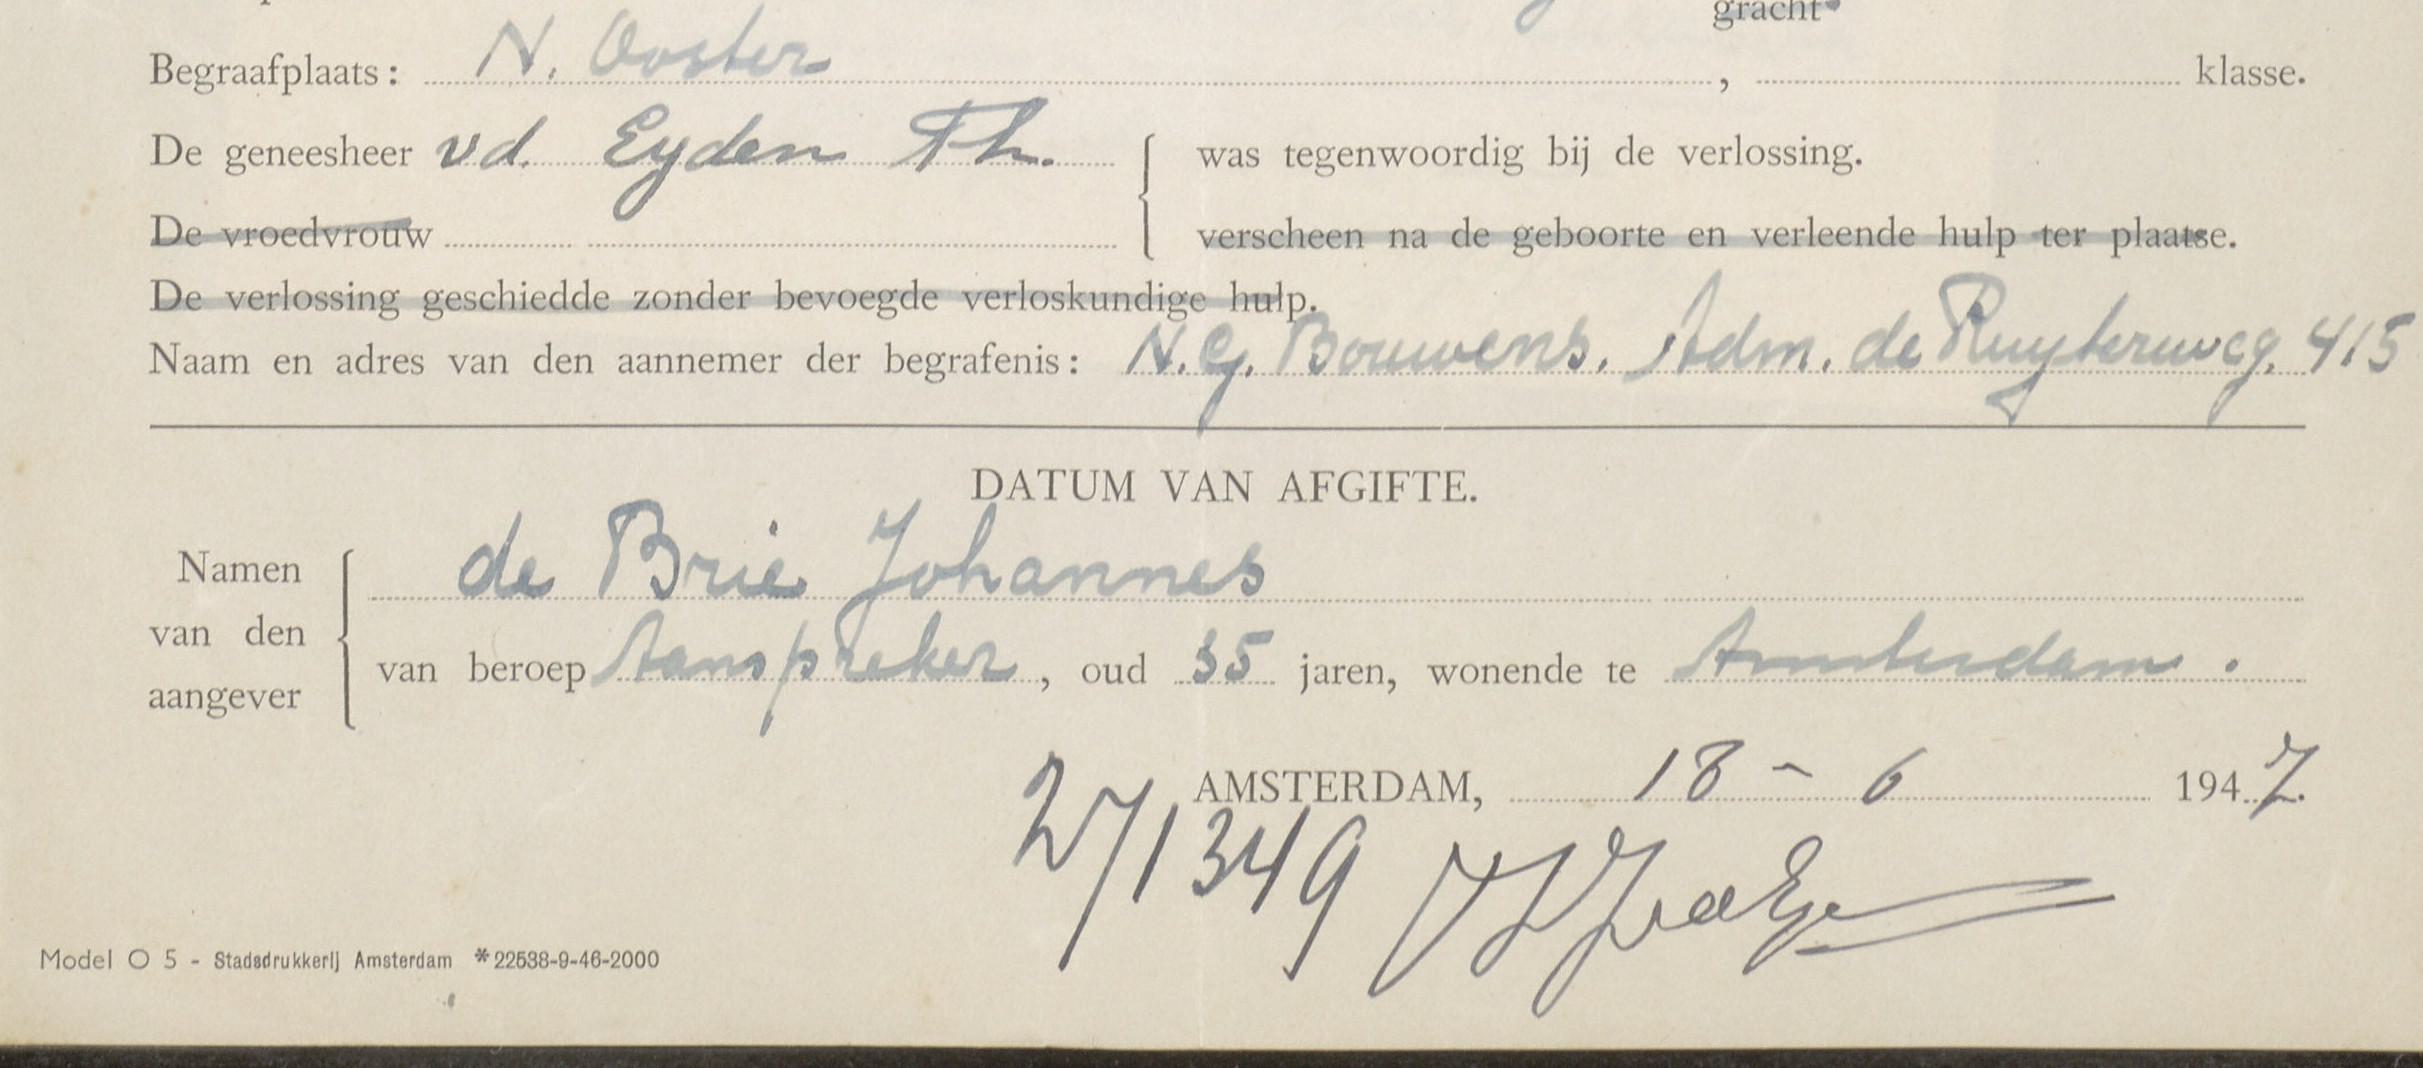 gracht
Begraafplaats: N. Ooster , klasse.
De geneesheer vd. Eyden Th. was tegenwoordig bij de verlossing.
De vroedvrouw verscheen na de geboorte en verleende hulp ter plaatse.
De verlossing geschiedde zonder bevoegde verloskundige hulp.
Naam en adres van den aannemer der begrafenis: N.G. Bouwens. Adm. de Ruyterweg. 415
DATUM VAN AFGIFTE.
Namen van den aangever
de Brie Johannes
van beroep Aanspreker, oud 35 jaren, wonende te Amsterdam.
AMSTERDAM, 18 - 6 1947.
271349
Model O 5 - Stadsdrukkerij Amsterdam *22538-9-46-2000